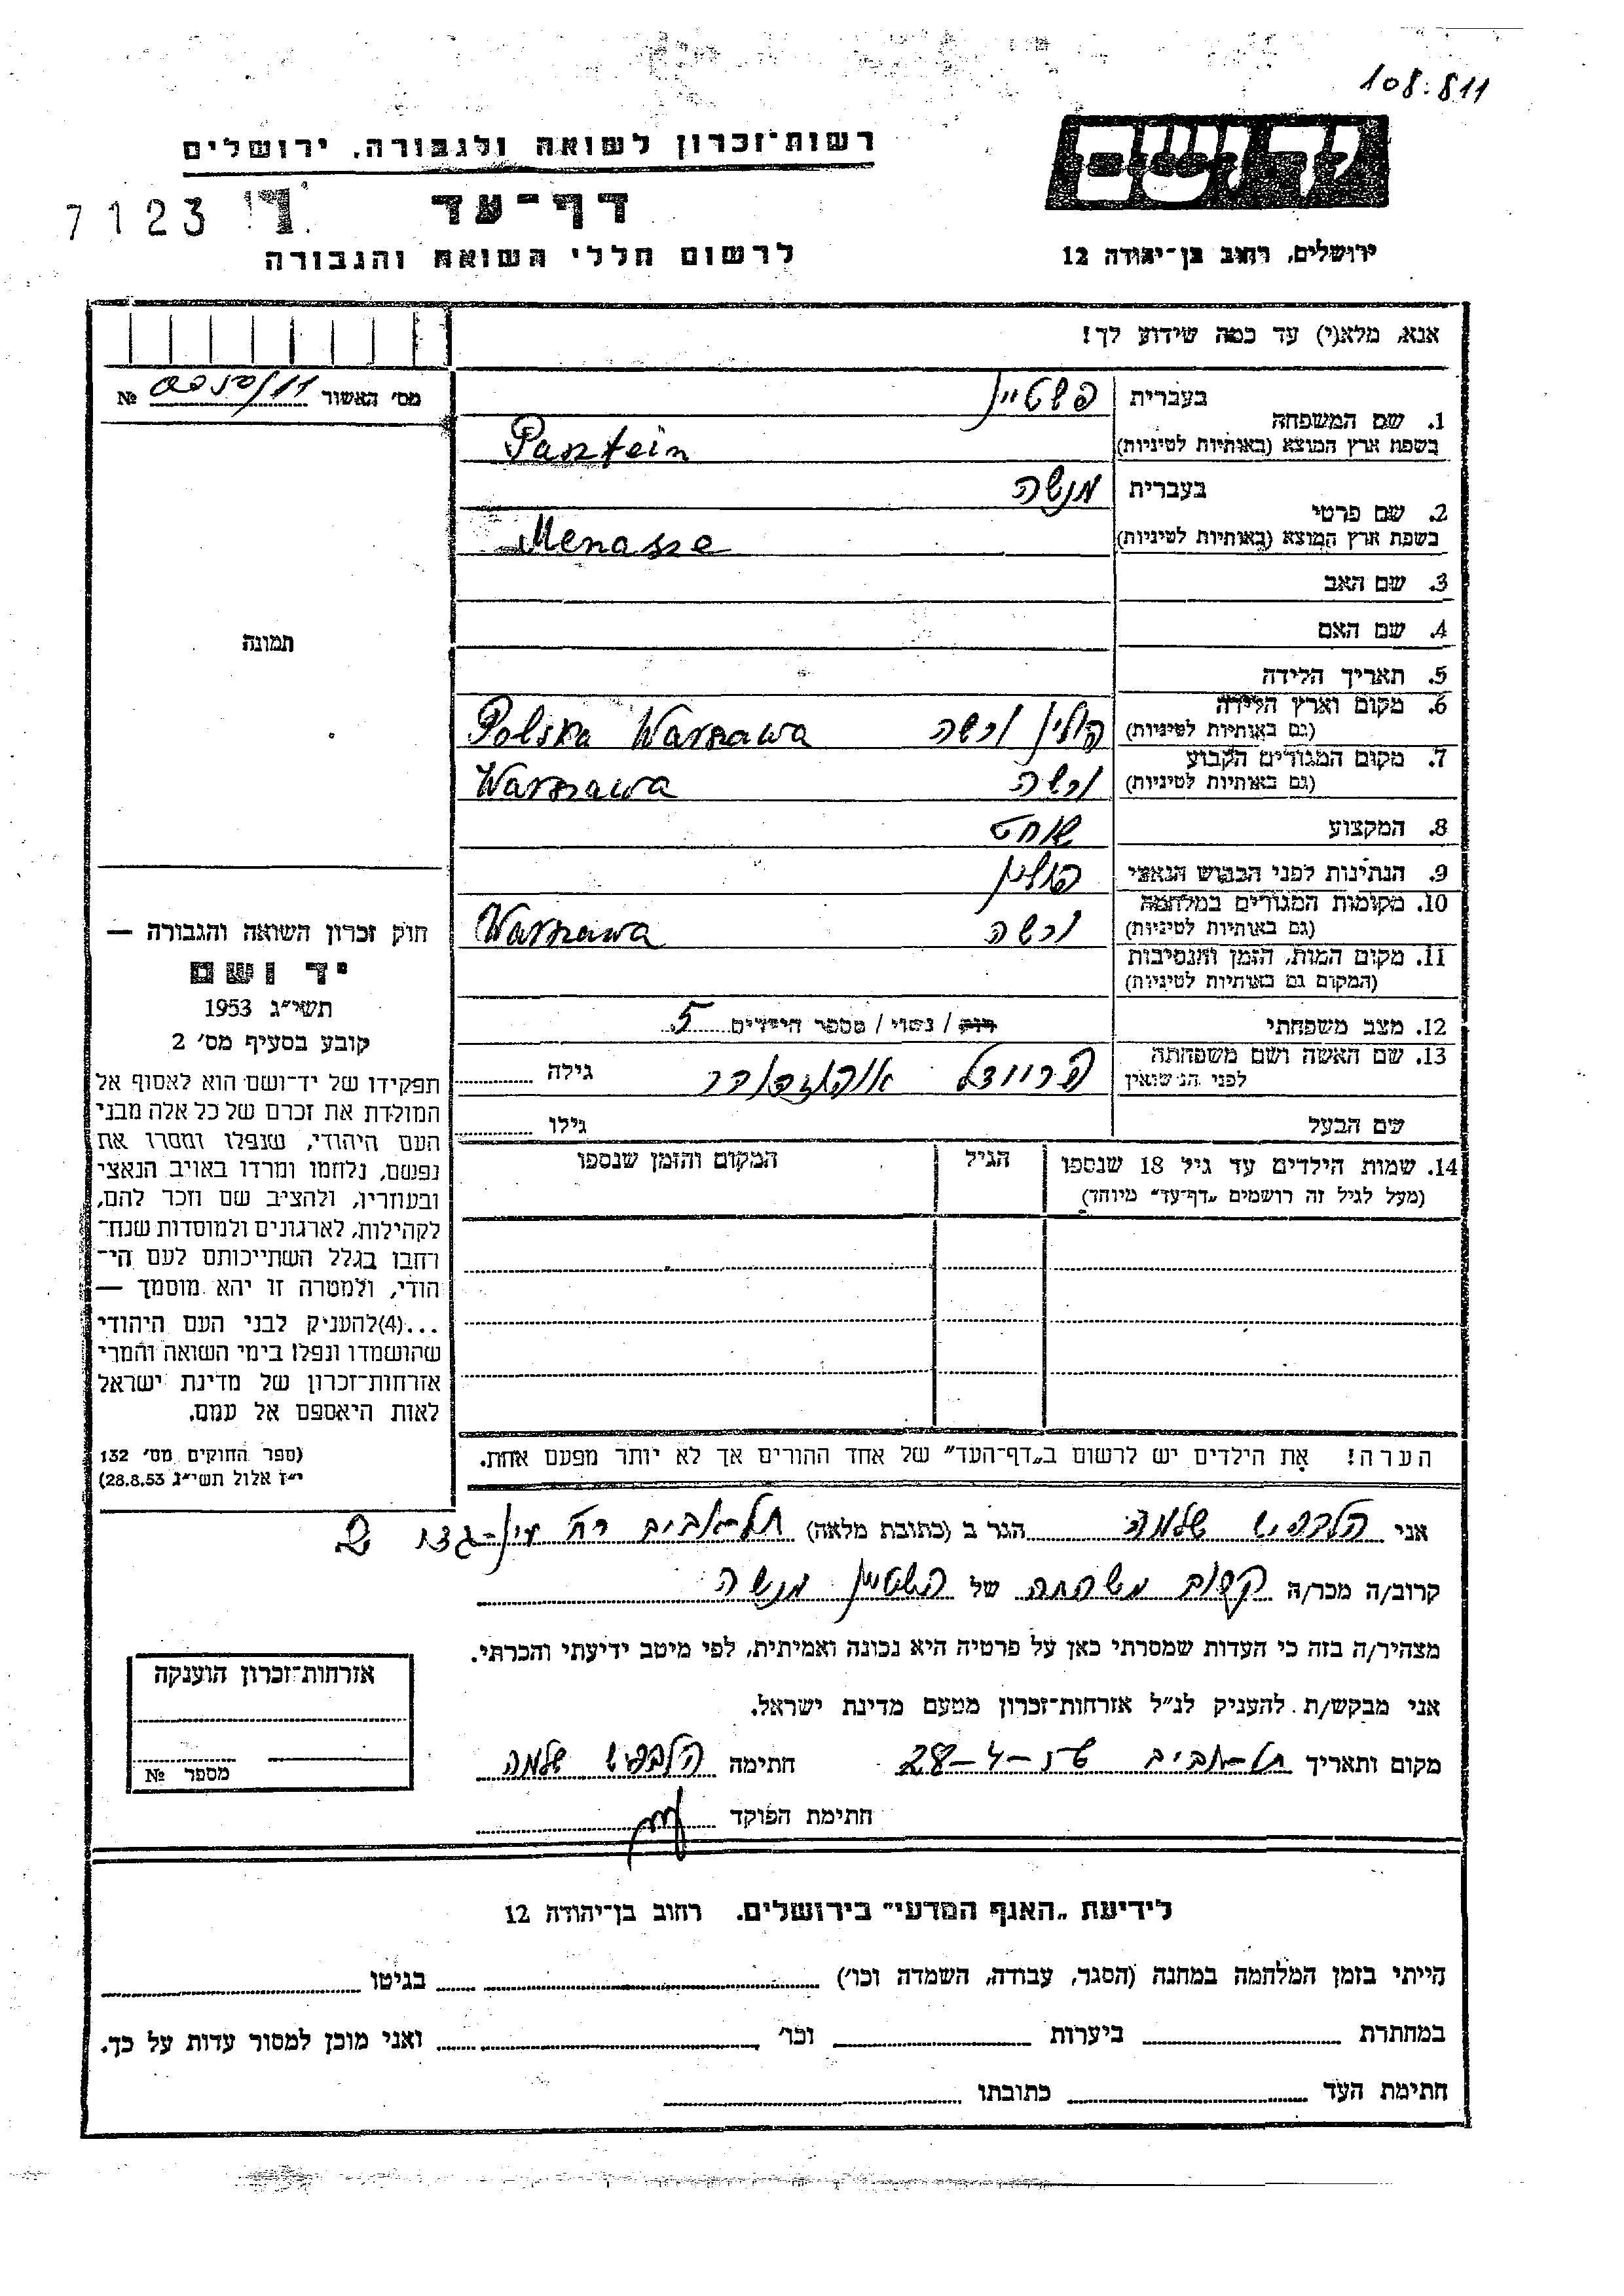 108.811
רשות־זכרון לשואה ולגבורה, ירושלים
יד ושם
דף־עד
7123
לרשום חללי השואה והגבורה
ירושלים, רחוב בן־יהודה 12
אנא, מלא(י) עד כמה שידוע לך!
מס׳ האשור №
1. שם המשפחה
בעברית פשטיין
בשפת ארץ המוצא (באותיות לטיניות) Pasztein
2. שם פרטי
בעברית מנשה
בשפת ארץ המוצא (באותיות לטיניות) Menasze
3. שם האב
4. שם האם
תמונה
5. תאריך הלידה
6. מקום וארץ הלידה
(גם באותיות לטיניות) פולין ורשה Polska Warszawa
7. מקום המגורים הקבוע
(גם באותיות לטיניות) ורשה Warszawa
8. המקצוע שוחט
9. הנתינות לפני הכבוש הנאצי פולין
10. מקומות המגורים במלחמה
(גם באותיות לטיניות) ורשה Warszawa
11. מקום המות, הזמן והנסיבות
(המקום גם באותיות לטיניות)
12. מצב משפחתי רווק / נשוי / מספר הילדים 5
13. שם האשה ושם משפחתה
לפני הנישואין פריידל גילה
שם הבעל גילו
14. שמות הילדים עד גיל 18 שנספו הגיל המקום והזמן שנספו
(מעל לגיל זה רושמים „דף־עד״ מיוחד)
חוק זכרון השואה והגבורה —
יד ושם
תשי״ג 1953
קובע בסעיף מס׳ 2
תפקידו של יד־ושם הוא לאסוף אל
המולדת את זכרם של כל אלה מבני
העם היהודי, שנפלו ומסרו את
נפשם, נלחמו ומרדו באויב הנאצי
ובעוזריו, ולהציב שם וזכר להם,
לקהילות, לארגונים ולמוסדות שנח־
רחבו בגלל השתייכותם לעם הי־
הודי, ולמטרה זו יהא מוסמך —
...(4)להעניק לבני העם היהודי
שהושמדו ונפלו בימי השואה והמרי
אזרחות־זכרון של מדינת ישראל
לאות היאספם אל עמם.
(ספר החוקים מס׳ 132
י״ז אלול תשי״ג 28.8.53)
הערה! את הילדים יש לרשום ב„דף־העד״ של אחד ההורים אך לא יותר מפעם אחת.
אני הלברט שלמה הגר ב (כתובת מלאה) תל־אביב רח עין־גדי
קרוב/ה מכר/ה קרוב משפחה של פשטיין מנשה
מצהיר/ה בזה כי העדות שמסרתי כאן על פרטיה היא נכונה ואמיתית, לפי מיטב ידיעתי והכרתי.
אני מבקש/ת להעניק לנ״ל אזרחות־זכרון מטעם מדינת ישראל.
מקום ותאריך תל־אביב חתימה הלברט שלמה
חתימת הפוקד
אזרחות־זכרון הוענקה
מספר №
לידיעת „האגף המדעי״ בירושלים, רחוב בן־יהודה 12
הייתי בזמן המלחמה במחנה (הסגר, עבודה, השמדה וכו׳) בגיטו
במחתרת ביערות וכו׳ ואני מוכן למסור עדות על כך.
חתימת העד כתובתו